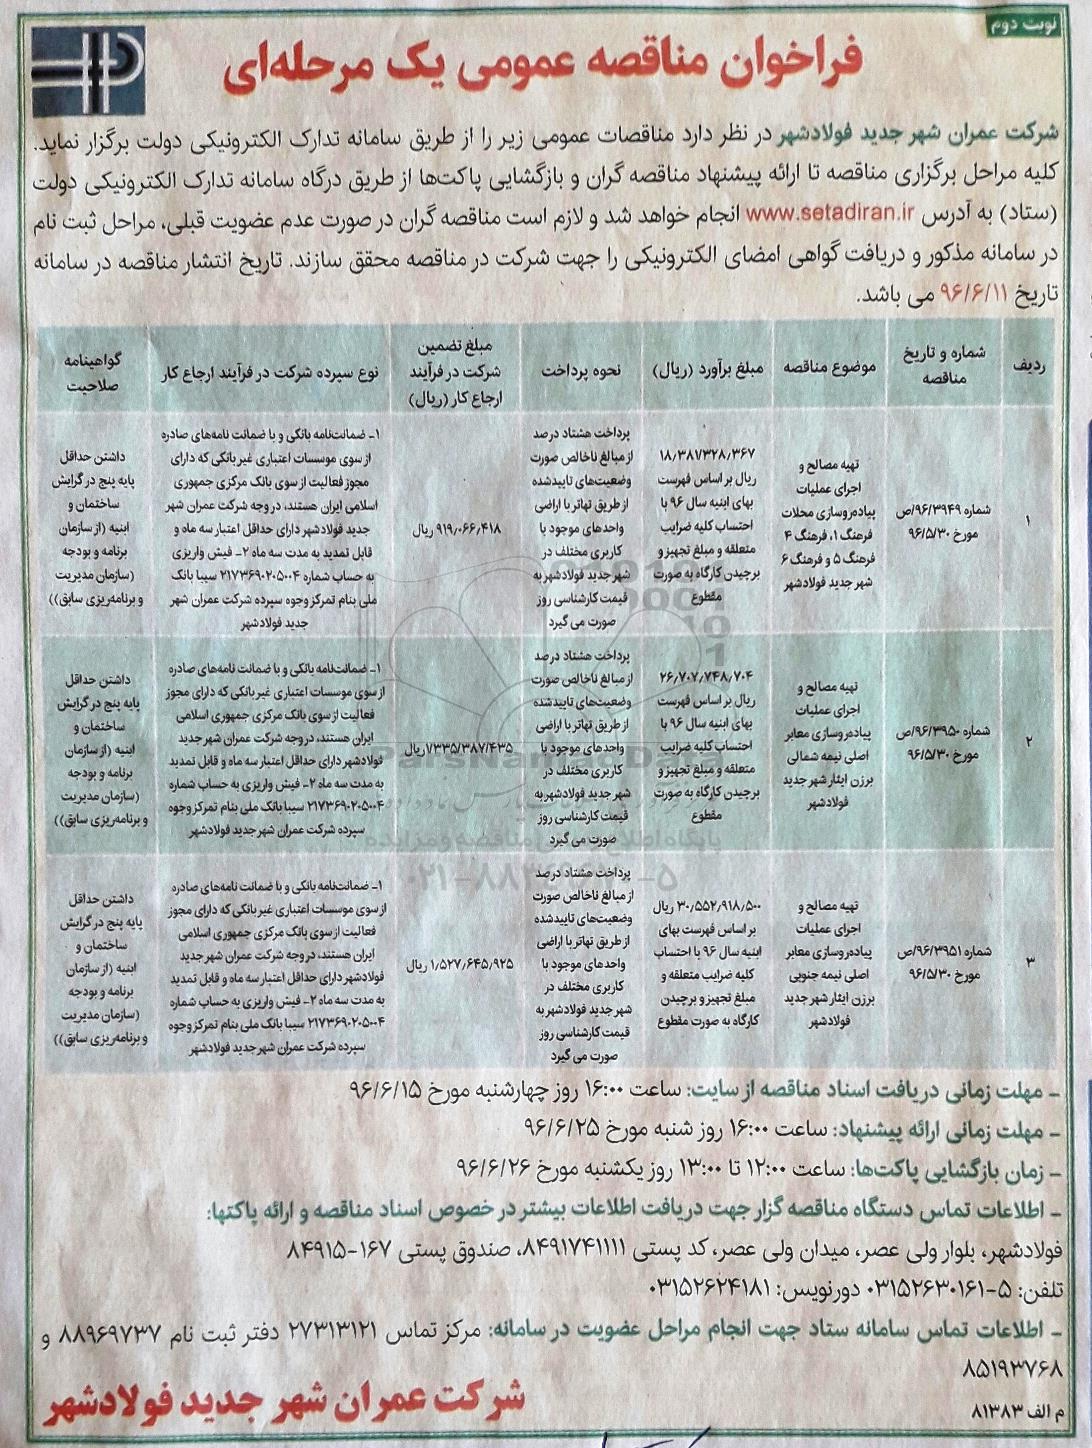 نوبت دوم
فراخوان مناقصه عمومی یک مرحله‌ای
شرکت عمران شهر جدید فولادشهر در نظر دارد مناقصات عمومی زیر را از طریق سامانه تدارک الکترونیکی دولت برگزار نماید.
کلیه مراحل برگزاری مناقصه تا ارائه پیشنهاد مناقصه گران و بازگشایی پاکت‌ها از طریق درگاه سامانه تدارک الکترونیکی دولت
(ستاد) به آدرس www.setadiran.ir انجام خواهد شد و لازم است مناقصه گران در صورت عدم عضویت قبلی، مراحل ثبت نام
در سامانه مذکور و دریافت گواهی امضای الکترونیکی را جهت شرکت در مناقصه محقق سازند. تاریخ انتشار مناقصه در سامانه
تاریخ ۹۶/۶/۱۱ می باشد.
ردیف
شماره و تاریخ
مناقصه
موضوع مناقصه
مبلغ برآورد (ریال)
نحوه پرداخت
مبلغ تضمین
شرکت در فرآیند
ارجاع کار (ریال)
نوع سپرده شرکت در فرآیند ارجاع کار
گواهینامه
صلاحیت
۱
شماره ۹۶/۳۹۴۹/ص
مورخ ۹۶/۵/۳۰
تهیه مصالح و
اجرای عملیات
پیاده‌روسازی محلات
فرهنگ ۱، فرهنگ ۴
فرهنگ ۵ و فرهنگ ۶
شهر جدید فولادشهر
۱۸٫۳۸۱/۳۲۸٫۳۶۷
ریال بر اساس فهرست
بهای ابنیه سال ۹۶ با
احتساب کلیه ضرایب
متعلقه و مبلغ تجهیز و
برچیدن کارگاه به صورت
مقطوع
پرداخت هشتاد درصد
از مبالغ ناخالص صورت
وضعیت‌های تاییدشده
از طریق تهاتر با اراضی
واحدهای موجود با
کاربری مختلف در
شهر جدید فولادشهر به
قیمت کارشناسی روز
صورت می گیرد
۹۱۹٫۰۶۶٫۴۱۸ ریال
۱ـ ضمانت‌نامه بانکی و یا ضمانت نامه‌های صادره
از سوی موسسات اعتباری غیر بانکی که دارای
مجوز فعالیت از سوی بانک مرکزی جمهوری
اسلامی ایران هستند، در وجه شرکت عمران شهر
جدید فولادشهر دارای حداقل اعتبار سه ماه و
قابل تمدید به مدت سه ماه ۲ـ فیش واریزی
به حساب شماره ۲۱۷۳۶۹۰۲۰۵۰۰۴ سیبا بانک
ملی بنام تمرکز وجوه سپرده شرکت عمران شهر
جدید فولادشهر
داشتن حداقل
پایه پنج در گرایش
ساختمان و
ابنیه (از سازمان
برنامه و بودجه
(سازمان مدیریت
و برنامه‌ریزی سابق))
۲
شماره ۹۶/۳۹۵۰/ص
مورخ ۹۶/۵/۳۰
تهیه مصالح و
اجرای عملیات
پیاده‌روسازی معابر
اصلی نیمه شمالی
برزن ایثار شهر جدید
فولادشهر
۲۶٫۷۰۷٫۷۴۸٫۷۰۴
ریال بر اساس فهرست
بهای ابنیه سال ۹۶ با
احتساب کلیه ضرایب
متعلقه و مبلغ تجهیز و
برچیدن کارگاه به صورت
مقطوع
پرداخت هشتاد درصد
از مبالغ ناخالص صورت
وضعیت‌های تاییدشده
از طریق تهاتر با اراضی
واحدهای موجود با
کاربری مختلف در
شهر جدید فولادشهر به
قیمت کارشناسی روز
صورت می گیرد
۱/۳۳۵/۳۸۷/۴۳۵ ریال
۱ـ ضمانت‌نامه بانکی و یا ضمانت نامه‌های صادره
از سوی موسسات اعتباری غیر بانکی که دارای مجوز
فعالیت از سوی بانک مرکزی جمهوری اسلامی
ایران هستند، در وجه شرکت عمران شهر جدید
فولادشهر دارای حداقل اعتبار سه ماه و قابل تمدید
به مدت سه ماه ۲ـ فیش واریزی به حساب شماره
۲۱۷۳۶۹۰۲۰۵۰۰۴ سیبا بانک ملی بنام تمرکز وجوه
سپرده شرکت عمران شهر جدید فولادشهر
داشتن حداقل
پایه پنج در گرایش
ساختمان و
ابنیه (از سازمان
برنامه و بودجه
(سازمان مدیریت
و برنامه‌ریزی سابق))
۳
شماره ۹۶/۳۹۵۱/ص
مورخ ۹۶/۵/۳۰
تهیه مصالح و
اجرای عملیات
پیاده‌روسازی معابر
اصلی نیمه جنوبی
برزن ایثار شهر جدید
فولادشهر
۳۰٫۵۵۲٫۹۱۸٫۵۰۰ ریال
بر اساس فهرست بهای
ابنیه سال ۹۶ با احتساب
کلیه ضرایب متعلقه و
مبلغ تجهیز و برچیدن
کارگاه به صورت مقطوع
پرداخت هشتاد درصد
از مبالغ ناخالص صورت
وضعیت‌های تاییدشده
از طریق تهاتر با اراضی
واحدهای موجود با
کاربری مختلف در
شهر جدید فولادشهر به
قیمت کارشناسی روز
صورت می گیرد
۱/۵۲۷٫۶۴۵٫۹۲۵ ریال
۱ـ ضمانت‌نامه بانکی و یا ضمانت نامه‌های صادره
از سوی موسسات اعتباری غیر بانکی که دارای مجوز
فعالیت از سوی بانک مرکزی جمهوری اسلامی
ایران هستند، در وجه شرکت عمران شهر جدید
فولادشهر دارای حداقل اعتبار سه ماه و قابل تمدید
به مدت سه ماه ۲ـ فیش واریزی به حساب شماره
۲۱۷۳۶۹۰۲۰۵۰۰۴ سیبا بانک ملی بنام تمرکز وجوه
سپرده شرکت عمران شهر جدید فولادشهر
داشتن حداقل
پایه پنج در گرایش
ساختمان و
ابنیه (از سازمان
برنامه و بودجه
(سازمان مدیریت
و برنامه‌ریزی سابق))
ParsNamadData
پایگاه اطلاع رسانی مناقصه و مزایده
۰۲۱-۸۸۳۴۹۶۷۰-۵
ـ مهلت زمانی دریافت اسناد مناقصه از سایت: ساعت ۱۶:۰۰ روز چهارشنبه مورخ ۹۶/۶/۱۵
ـ مهلت زمانی ارائه پیشنهاد: ساعت ۱۶:۰۰ روز شنبه مورخ ۹۶/۶/۲۵
ـ زمان بازگشایی پاکت‌ها: ساعت ۱۲:۰۰ تا ۱۳:۰۰ روز یکشنبه مورخ ۹۶/۶/۲۶
ـ اطلاعات تماس دستگاه مناقصه گزار جهت دریافت اطلاعات بیشتر در خصوص اسناد مناقصه و ارائه پاکتها:
فولادشهر، بلوار ولی عصر، میدان ولی عصر، کد پستی ۸۴۹۱۷۴۱۱۱۱، صندوق پستی ۱۶۷-۸۴۹۱۵
تلفن: ۵-۰۳۱۵۲۶۳۰۱۶۱ دورنویس: ۰۳۱۵۲۶۲۴۱۸۱
ـ اطلاعات تماس سامانه ستاد جهت انجام مراحل عضویت در سامانه: مرکز تماس ۲۷۳۱۳۱۲۱ دفتر ثبت نام ۸۸۹۶۹۷۳۷ و
۸۵۱۹۳۷۶۸
م الف ۸۱۳۸۳
شرکت عمران شهر جدید فولادشهر